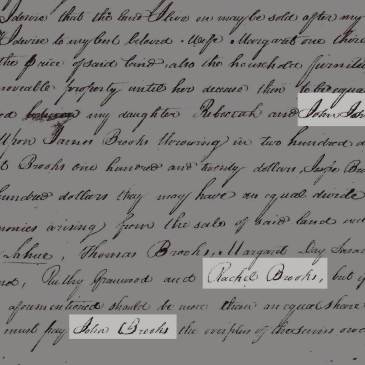 I desire that the land I live on may be sold after my
I desire to my best beloved Wife Margaret one third
the price of said land, also the household furnitu
moveable property until her decease then to be equa
my daughter Rebecah and John
Upon James Brooks throwing in two hundred d
Brooks one hundred and twenty dollars, Brooks
hundred dollars they may have an equal divide
monies arising from the sale of said land and
Thomas Brooks, Margaret Day
and, Ruthy Greenwood and Rachel Brooks, but if
aforementioned should be more than an equal share
must pay John Brooks the overplus of these